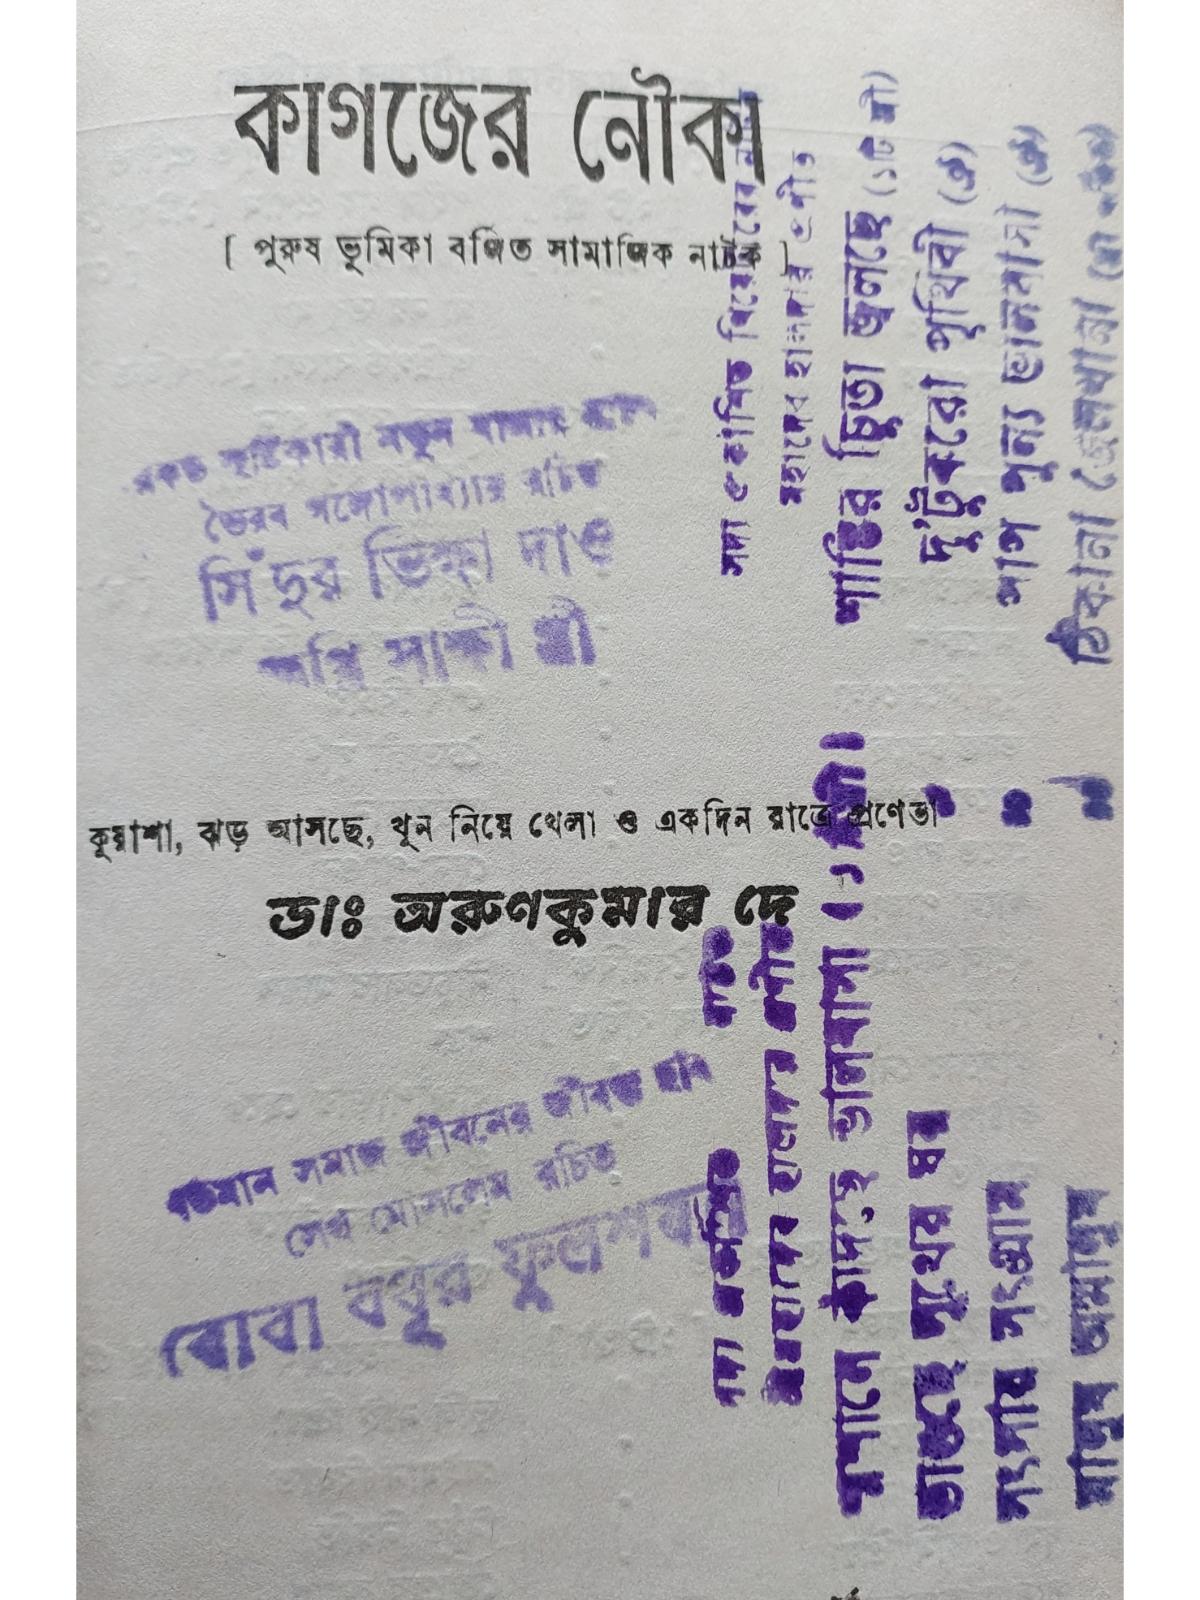 কাগজের নৌকা
[ পুরুষ ভূমিকা বর্জিত সামাজিক নাটক ]
সৃষ্টিকারী নতুন
ভৈরব গঙ্গোপাধ্যায় রচিত
সিঁদুর ভিক্ষা দাও
অগ্নি সাক্ষী স্ত্রী
কুয়াশা, ঝড় আসছে, খুন নিয়ে খেলা ও একদিন রাত্রে প্রণেতা
ডাঃ অরুণকুমার দে
বর্তমান সমাজ জীবনের জীবন্ত ছবি
সেখ মোসলেম রচিত
বোবা বধুর ফুলশয্যা
সদ্য প্রকাশিত
মহাদেব হালদার প্রণীত
শান্তির চিতা জ্বলছে (১টি স্ত্রী)
দু'টুকরো পৃথিবী (ঐ)
পাপ পুন্য ভালবাসা (ঐ)
ঠিকানা জেলখানা
সদ্য প্রকাশিত
শ্মশানে কাঁদছে ভালবাসা
ভাঙছে সুখের ঘর
সংসার সংগ্রাম
মানুষ অমানুষ